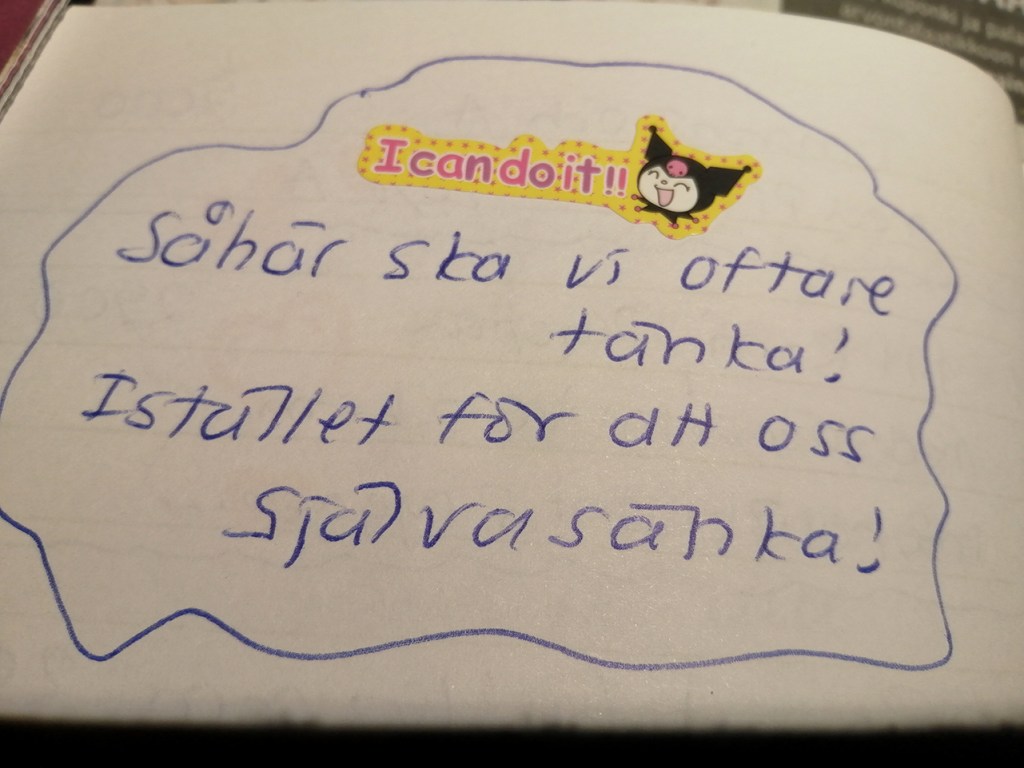 I can do it!!
Såhär ska vi oftare
tänka!
Istället för att oss
självasänka!